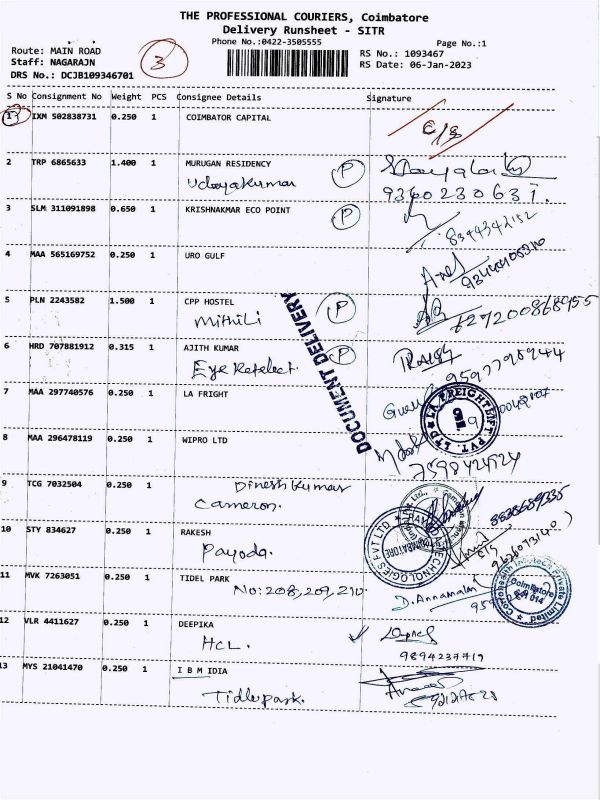 THE PROFESSIONAL COURIERS, Coimbatore
Delivery Runsheet - SITR
Phone No.:0422-3505555 Page No.:1
Route: MAIN ROAD RS No.: 1093467
Staff: NAGARAJN RS Date: 06-Jan-2023
DRS No.: DCJB109346701
3
S No Consignment No Weight PCS Consignee Details Signature
1 IXM 502838731 0.250 1 COIMBATOR CAPITAL
2 TRP 6865633 1.400 1 MURUGAN RESIDENCY P
Udayakumar 9360230631.
3 SLM 311091898 0.650 1 KRISHNAKMAR ECO POINT P
8344342152
4 MAA 565169752 0.250 1 URO GULF
5 PLN 2243582 1.500 1 CPP HOSTEL P
Mithili
DOCUMENT DELIVERY
6 HRD 707881912 0.315 1 AJITH KUMAR P
Eye
7 MAA 297740576 0.250 1 LA FRIGHT
LA FREIGHTLIFT PVT. LTD
8 MAA 296478119 0.250 1 WIPRO LTD
9 TCG 7032504 0.250 1 Dinesh Kumar
Cameron.
10 STY 834627 0.250 1 RAKESH
Payoda.
TECHNOLOGIES PVT LTD
COIMBATORE
11 MVK 7263051 0.250 1 TIDEL PARK
No: 208, 209, 210. D. Annamalai
Infotech Private Limited
Coimbatore
12 VLR 4411627 0.250 1 DEEPIKA
HCL. 9894237719
13 MYS 21041470 0.250 1 I B M IDIA
Tidle park.